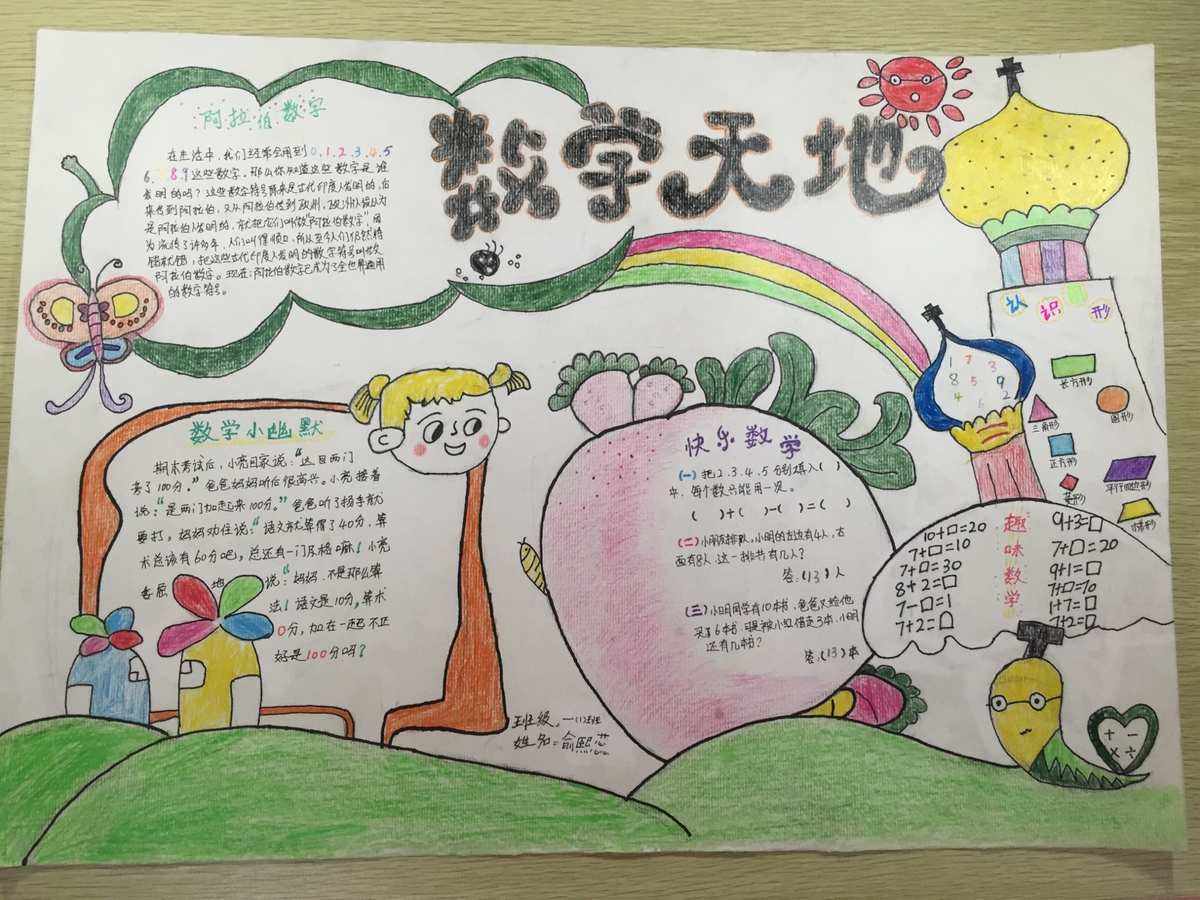 数学天地
阿拉伯数字
在生活中，我们经常会用到0.1.2.3.4.5
6.7.8.9这些数字。那么你知道这些数字是谁
发明的吗？这些数字符号原来是古代印度人发明的，后
来传到阿拉伯，又从阿拉伯传到欧洲，欧洲人误以为
是阿拉伯人发明的，就把它们叫做"阿拉伯数字"，因
为流传了许多年，人们叫惯顺口，所以至今人们仍然将
错就错，把这些古代印度人发明的数字符号叫做
阿拉伯数字。现在，阿拉伯数字已成为了全世界通用
的数字符号。
数学小幽默
期末考试后，小亮回家说："这日两门
考了100分。"爸爸妈妈听后很高兴。小亮接着
说："是两门加起来100分。"爸爸听了扬手就
要打，妈妈劝住说："语文就算得了40分，算
术总该有60分吧，总还有一门及格嘛！小亮
委屈 地 说："妈妈，不是那么算
法！语文是10分，算术
0分，加在一起不正
好是100分吗？
快乐数学
(一)把2.3.4.5分别填入( )
中，每个数只能用一次。
( )+( )-( )=( )
(二)小明排队，小明的左边有4人，右
面有8人，这一排共有几人？
答：(13)人
(三)小明同学有10本书，爸爸又给他
买了6本书，可是被小红借走3本，小明
还有几本书？
答：(13)本
认识图形
长方形
圆形
三角形
正方形
平行四边形
菱形
梯形
1 7 3
8 5 9
4 6 2
趣味数学
10+□=20
7+□=10
7+□=30
8+2=□
7-□=1
7+2=□
9+3=□
7+□=20
9+1=□
7+□=10
1+7=□
7+2=□
班级：一(1)班
姓名：俞熙芯
+ -
× ÷